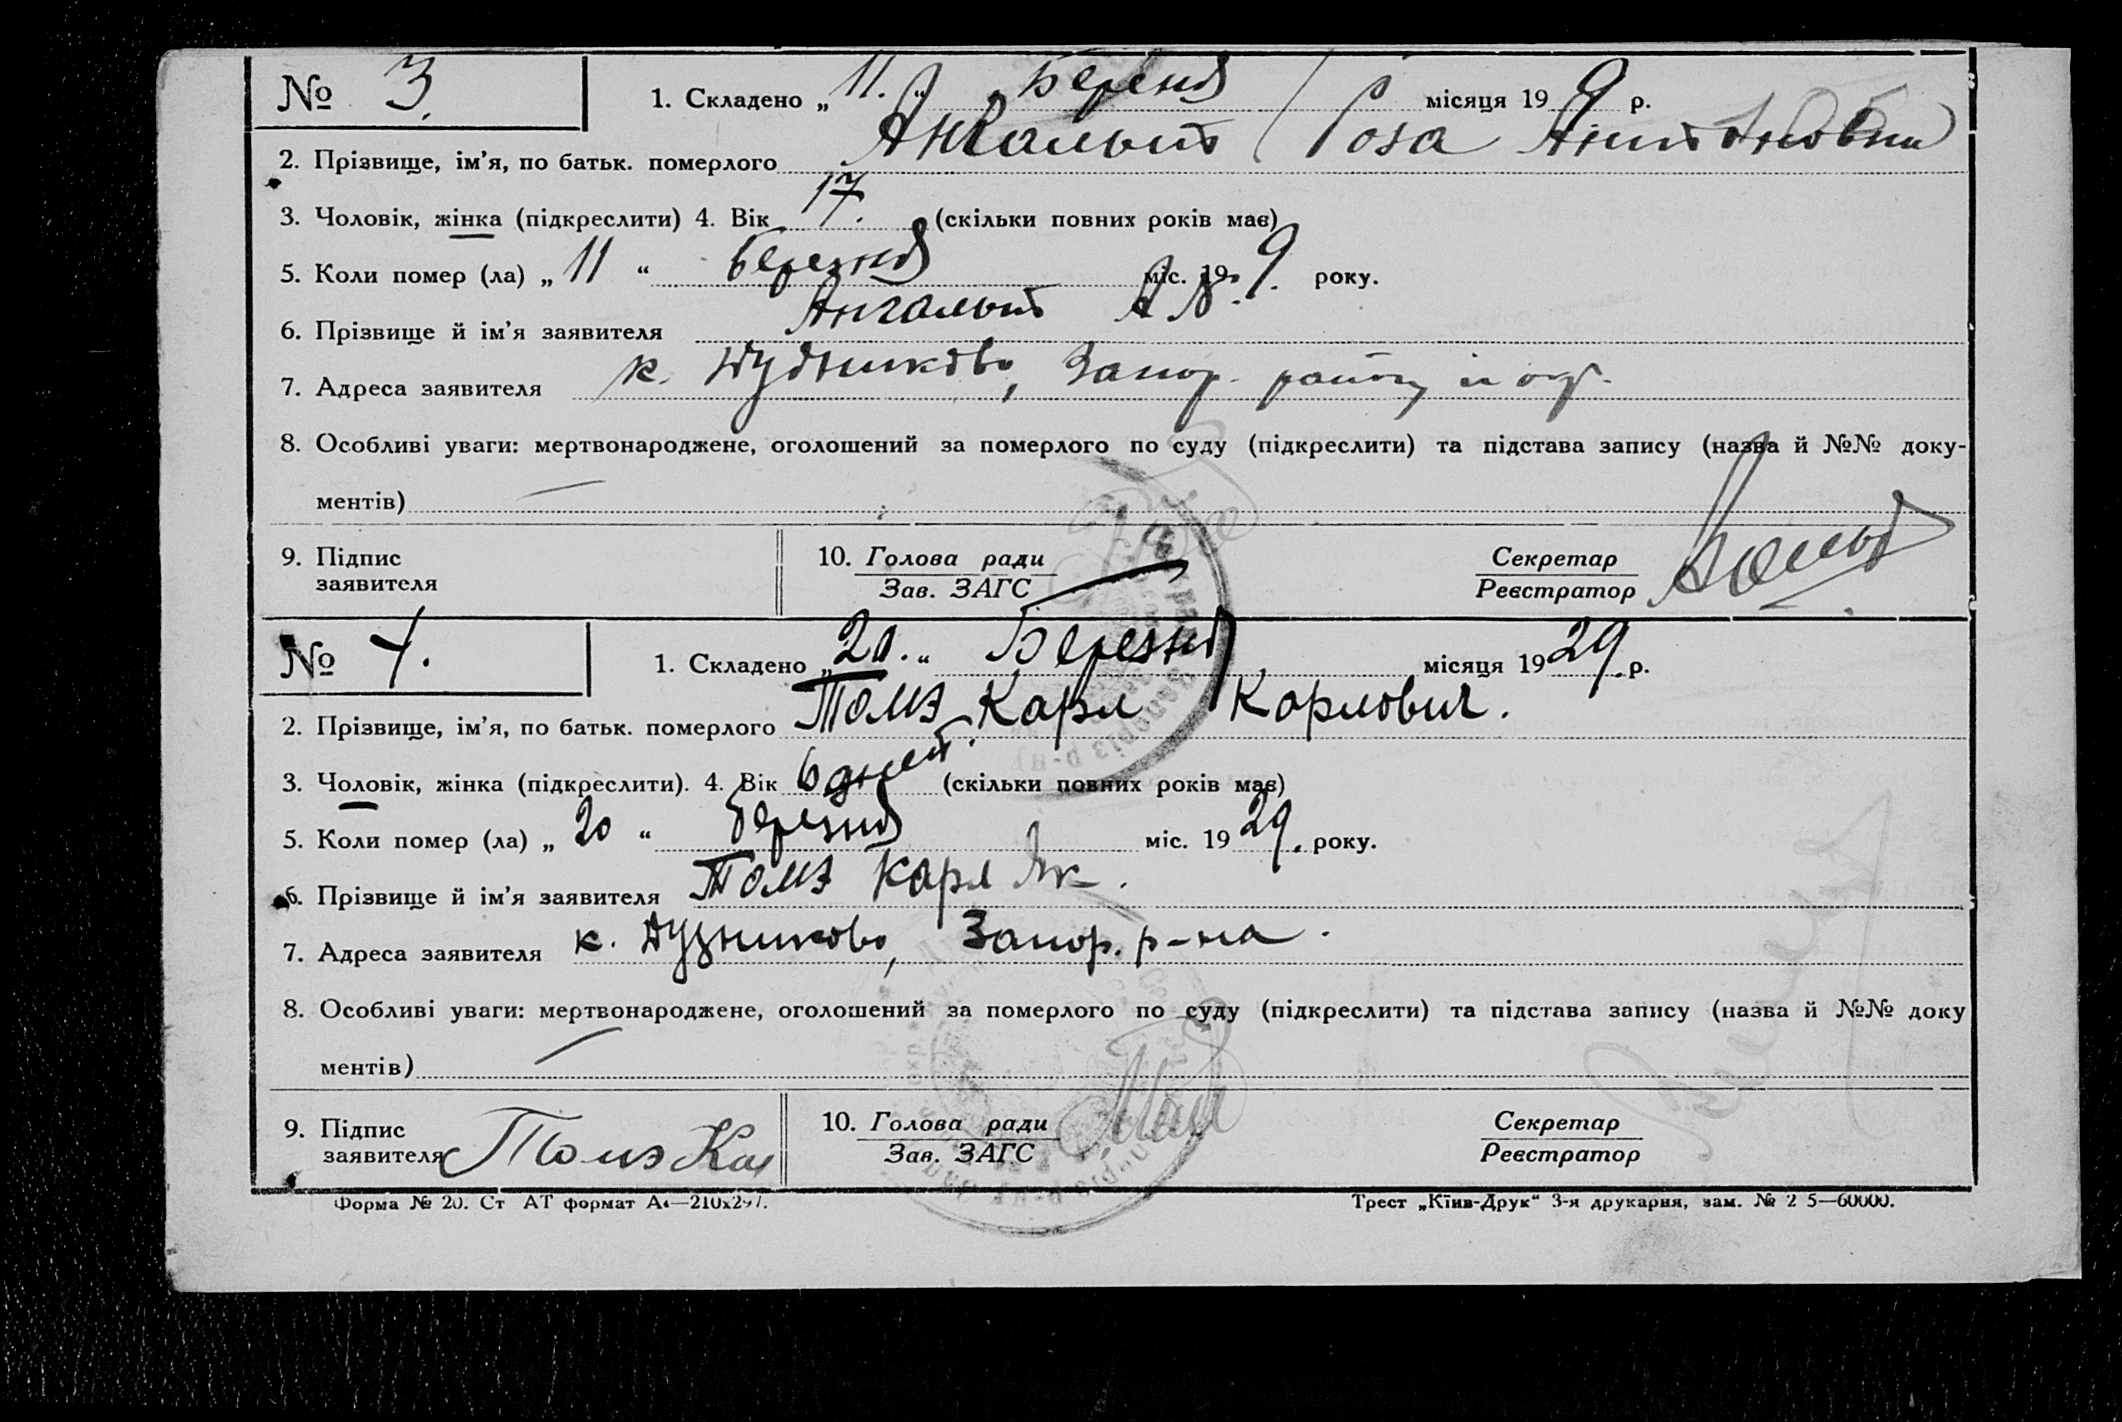 № 3. 1. Складено „ 11. “ Березня місяця 19 9 р.
2. Прізвище, ім’я, по батьк. померлого Ангальт Роза Антоновна
3. Чоловік, жінка (підкреслити) 4. Вік 17. (скільки повних років має)
5. Коли помер (ла) „ 11 “ березня міс. 19 9. року.
6. Прізвище й ім’я заявителя Ангальт А
7. Адреса заявителя к. Запор. району й окр.
8. Особливі уваги: мертвонароджене, оголошений за померлого по суду (підкреслити) та підстава запису (назва й №№ доку-
ментів) —
9. Підпис заявителя 10. Голова ради Зав. ЗАГС Секретар Реєстратор
№ 4. 1. Складено „ 20. “ Березня місяця 19 29. р.
2. Прізвище, ім’я, по батьк. померлого Томэ Карл Карлович.
3. Чоловік, жінка (підкреслити). 4. Вік 6 дней. (скільки повних років має)
5. Коли помер (ла) „ 20 “ березня міс. 19 29. року.
6. Прізвище й ім’я заявителя Томэ Карл Як.
7. Адреса заявителя к. Запор. р-на.
8. Особливі уваги: мертвонароджене, оголошений за померлого по суду (підкреслити) та підстава запису (назва й №№ доку
ментів) —
9. Підпис заявителя Томэ Ка 10. Голова ради Зав. ЗАГС Секретар Реєстратор
Форма № 20. Ст АТ формат А4—210х297. Трест „Київ-Друк“ 3-я друкарня, зам. № 2 5—60000.